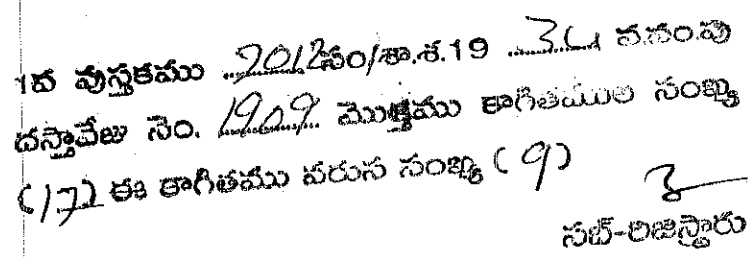 1వ పుస్తకము 2012సం/శా.శ.19 34 వ.సం.పు
దస్తావేజు నెం. 1909 మొత్తము కాగితముల సంఖ్య
(17) ఈ కాగితము వరుస సంఖ్య (9)
సబ్-రిజిస్ట్రారు